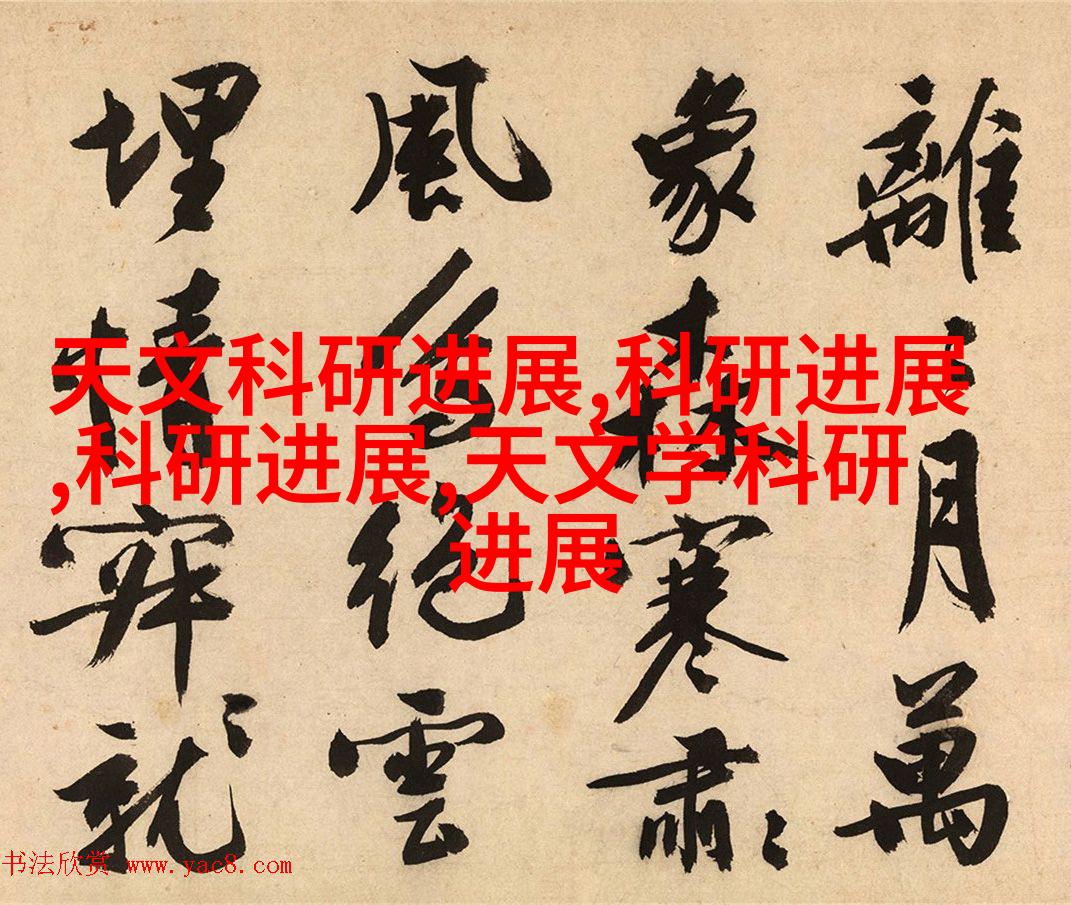 離月萬
象森寒肅
風為絕雲
埋情就
天文科研进展,科研进展
,科研进展,天文学科研
进展
书法欣赏 www.yac8.com